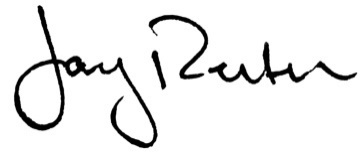 Jay Reiter